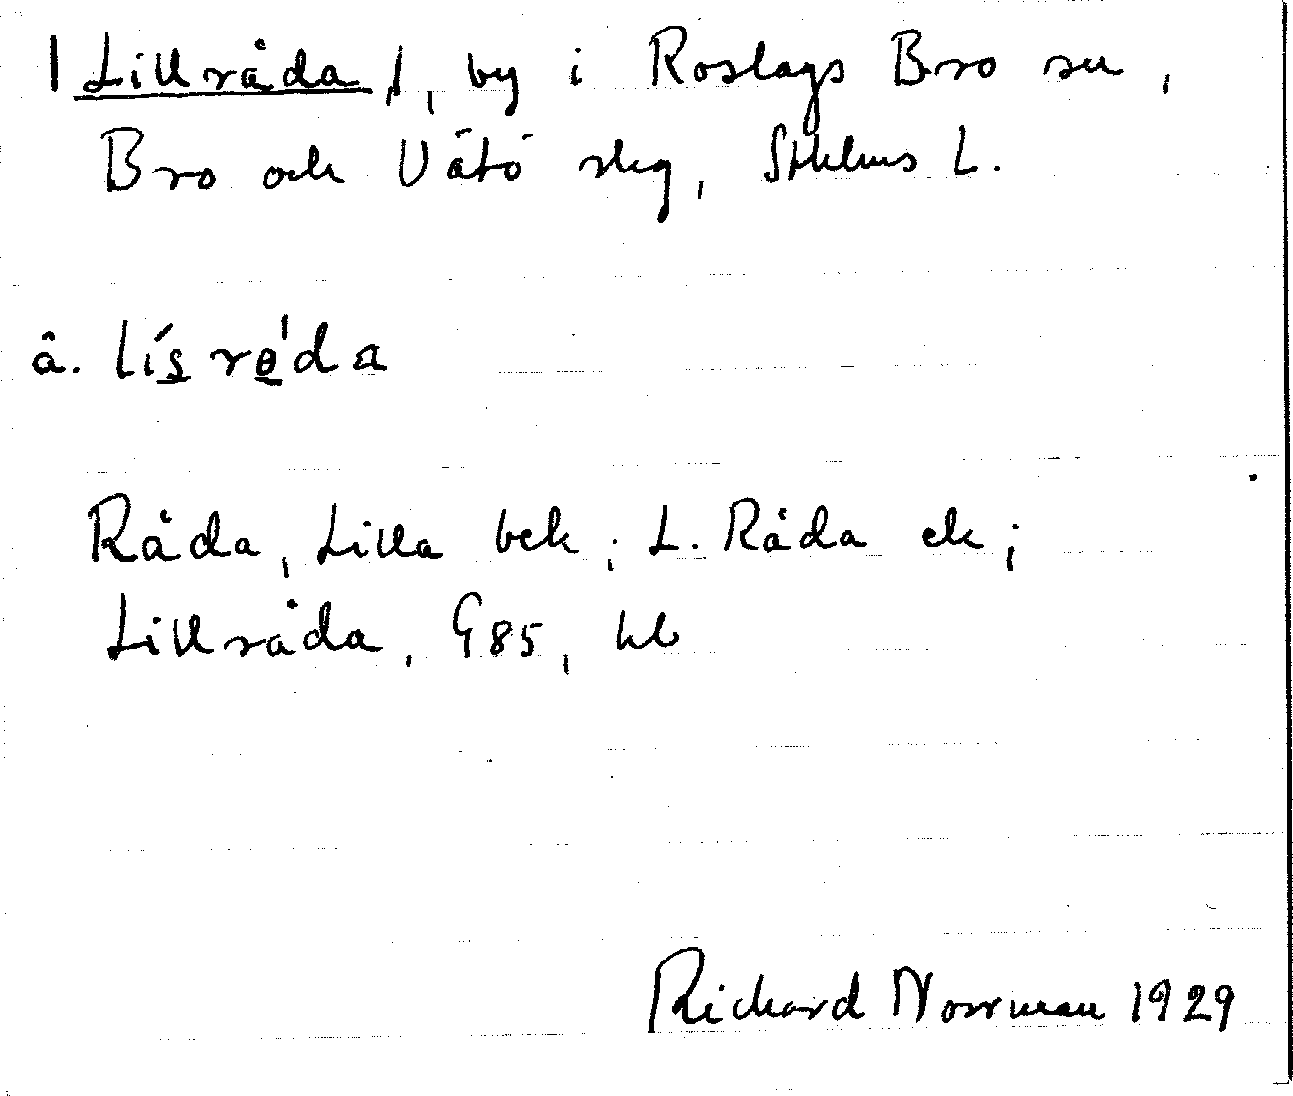 |Lillråda|, by i Roslags Bro sn,
Bro och Vätö skg, Sthlms L.
â.
Råda, Lilla bek; L. Råda ek;
Lillråda, G85, hl
Richard Norrman 1929